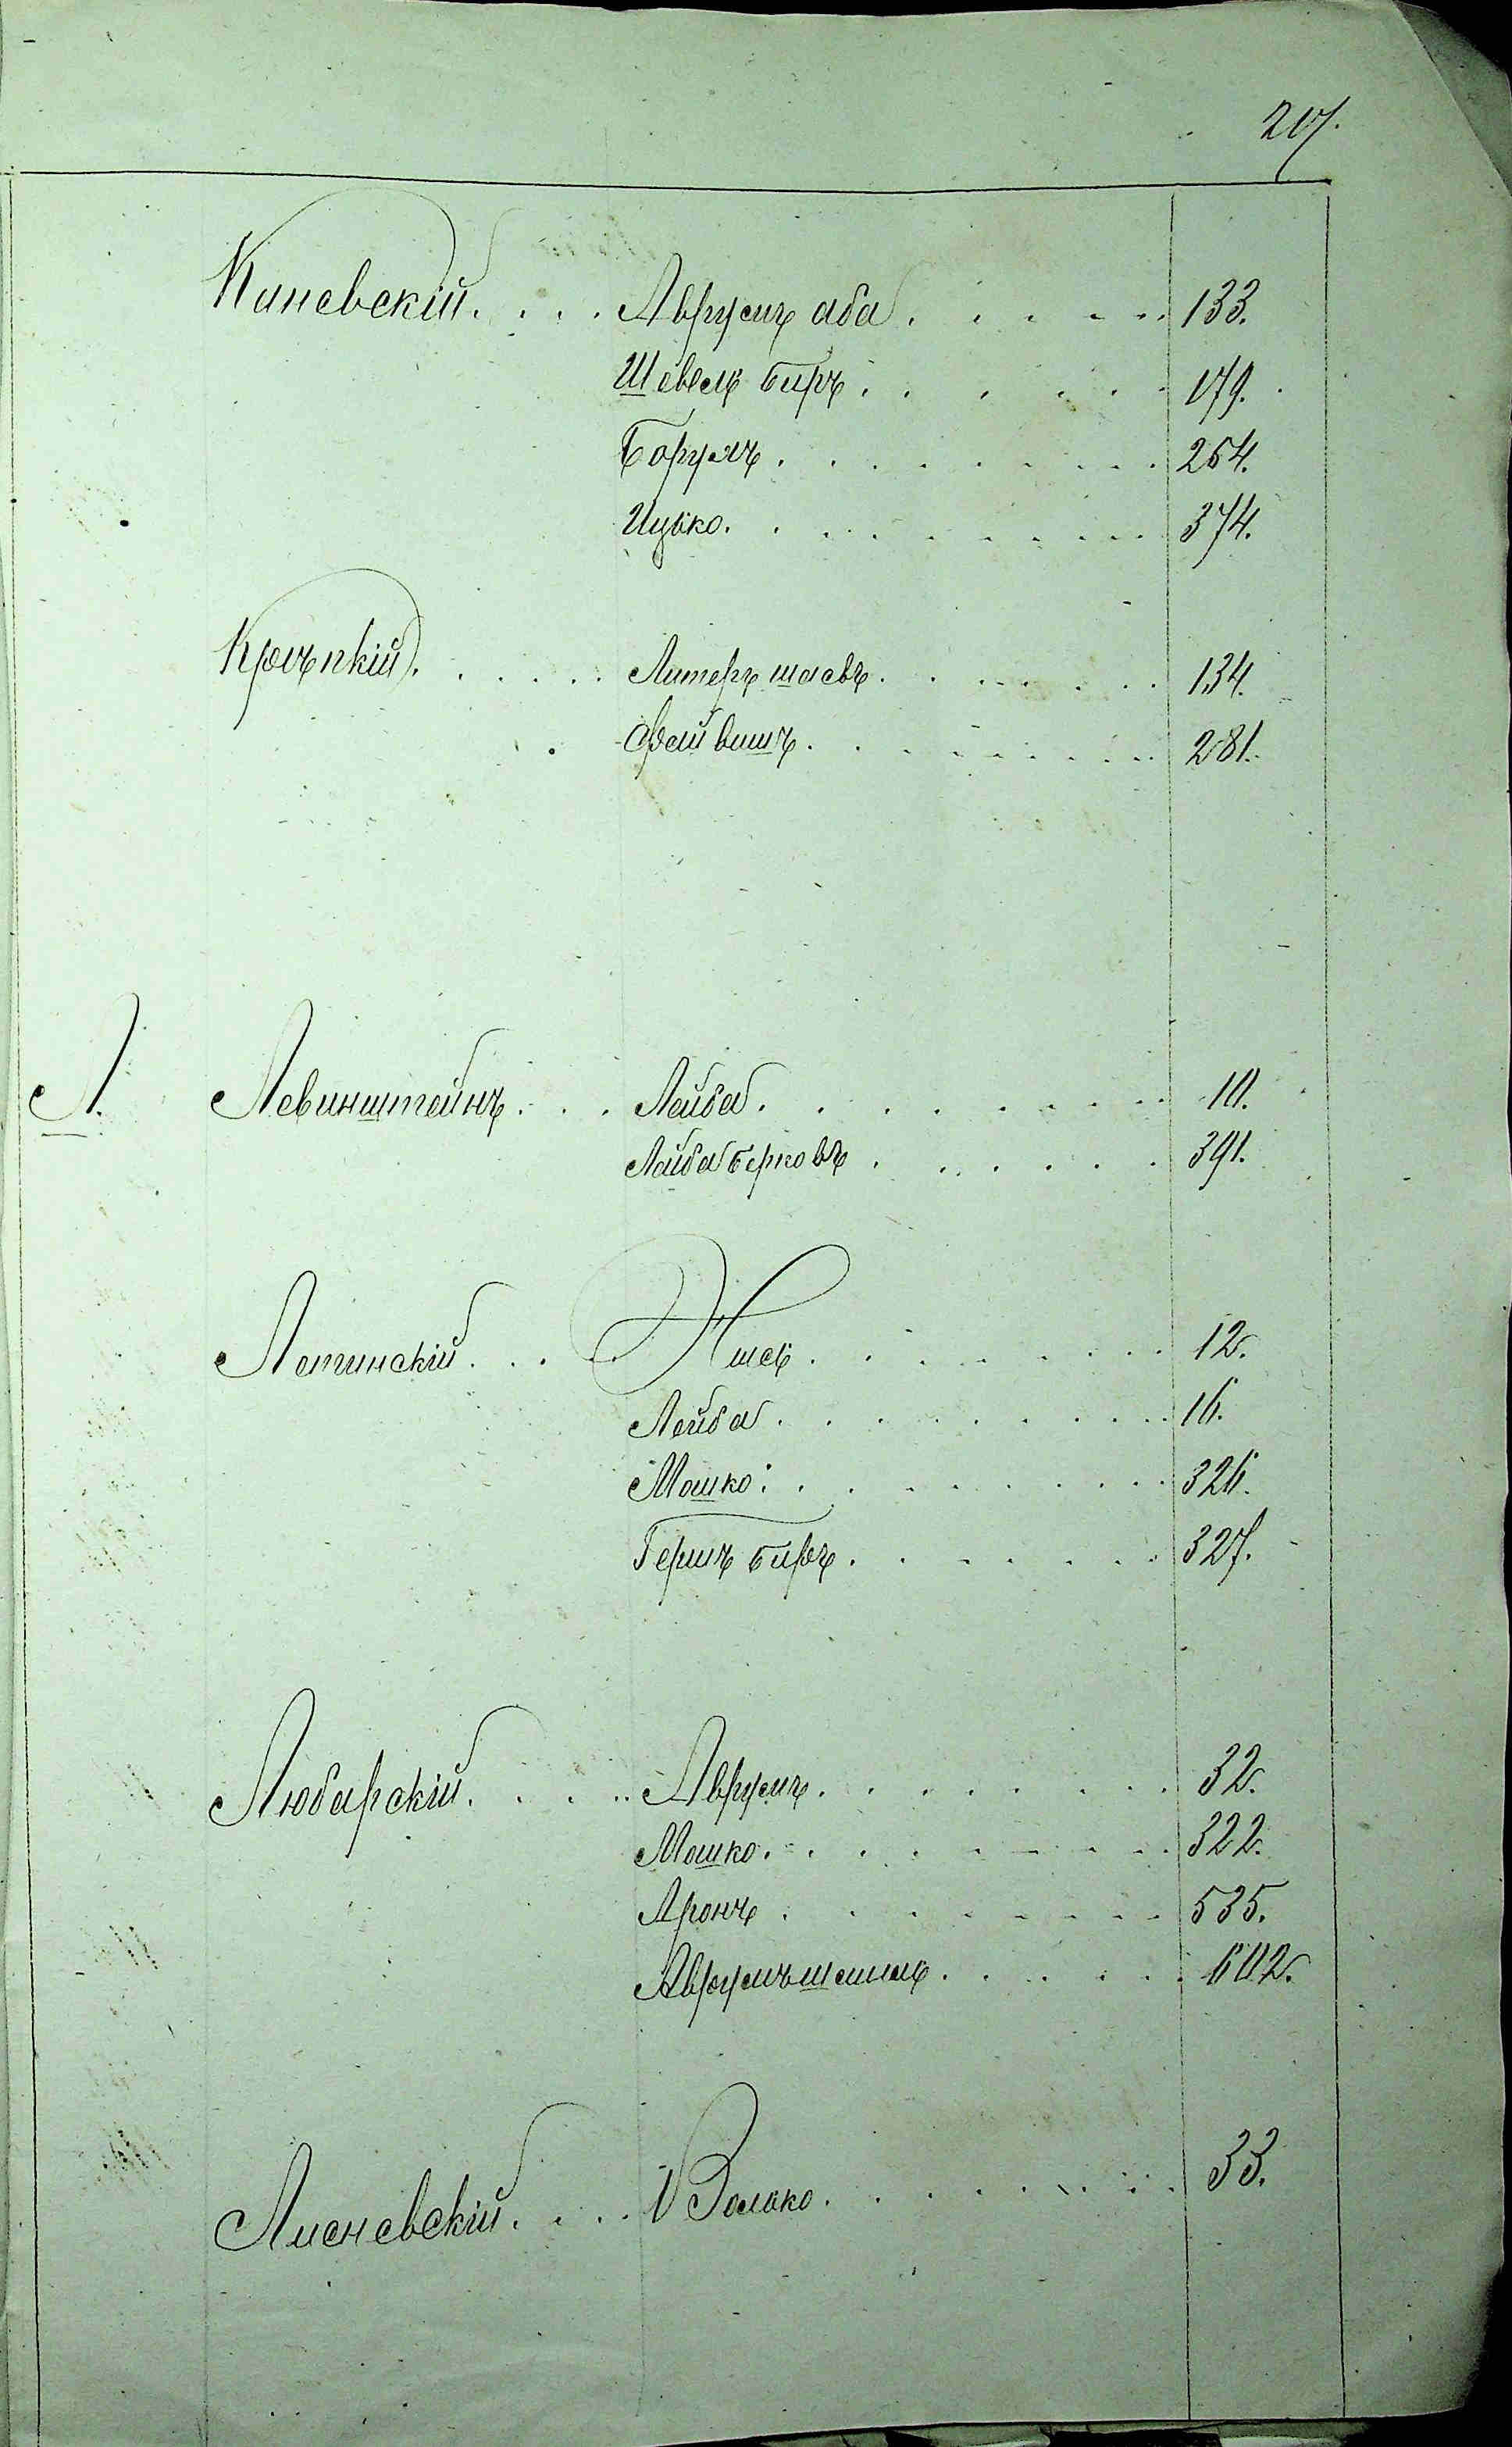 207.
Каневскій. . . . Аврумъ аба . . . . . 133.
Шевель Биръ . . . . . 179.
Борухъ . . . . . . . . . 254.
Ицько . . . . . . . . . 374.
Крѣпкій . . . . . . . . . . . . . . 134.
Файвишъ . . . . . . . . . 281.
Л. Левинштейнъ . . . Лейба . . . . . . . . . 10.
Лейба Берковъ . . . . . . 391.
Летинскій . . . . . . . . . . . . 12.
Лейба . . . . . . . . . 16.
Мошко . . . . . . . . . 326.
Гершъ Биръ . . . . . . . 327.
Любарскій . . . . Аврумъ . . . . . . . . 32.
Мошко . . . . . . . . . 322.
Аронъ . . . . . . . . . 535.
Аврумъ . . . . . . 602.
Лисневскій . . . . Волько . . . . . . . . 33.